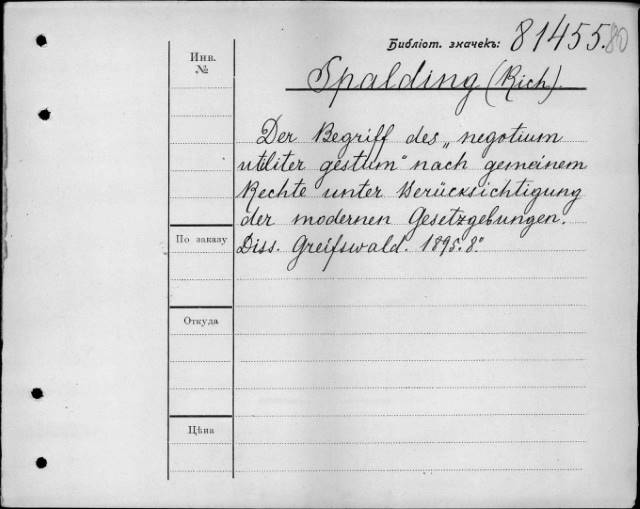 Библіот. значекъ: 81455.80
Инв.
№
Spalding (Rich).
Der Begriff des „negotium
utiliter gestum" nach gemeinem
Rechte unter Berücksichtigung
der modernen Gesetzgebungen.
По заказу
Diss. Greifswald. 1895. 8.°
Откуда
Цѣна